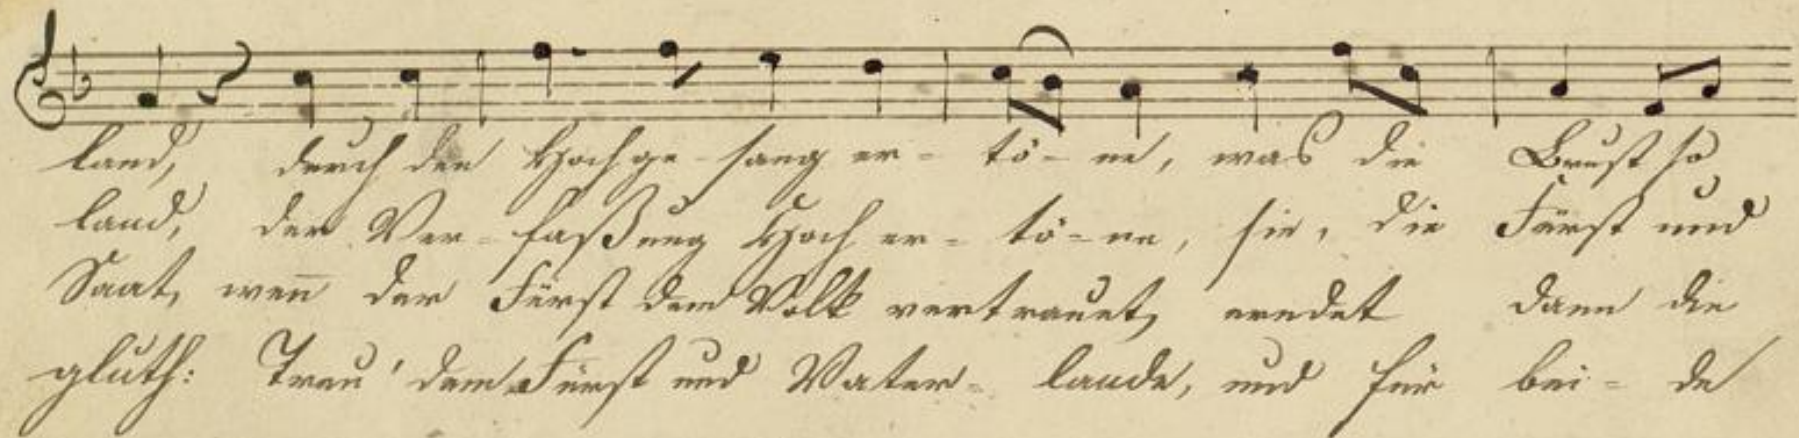 land, durch den Hochge-sang er- tö- ne, was die Brust so
land, der Ver- faßung Hoch er- tö-ne, sie, die Fürst und
Saat, wen̄ der Fürst dem Volk vertrauet, erndet dann die
gluth: Treu' dem Fürst und Vater- lande, und für bei- de